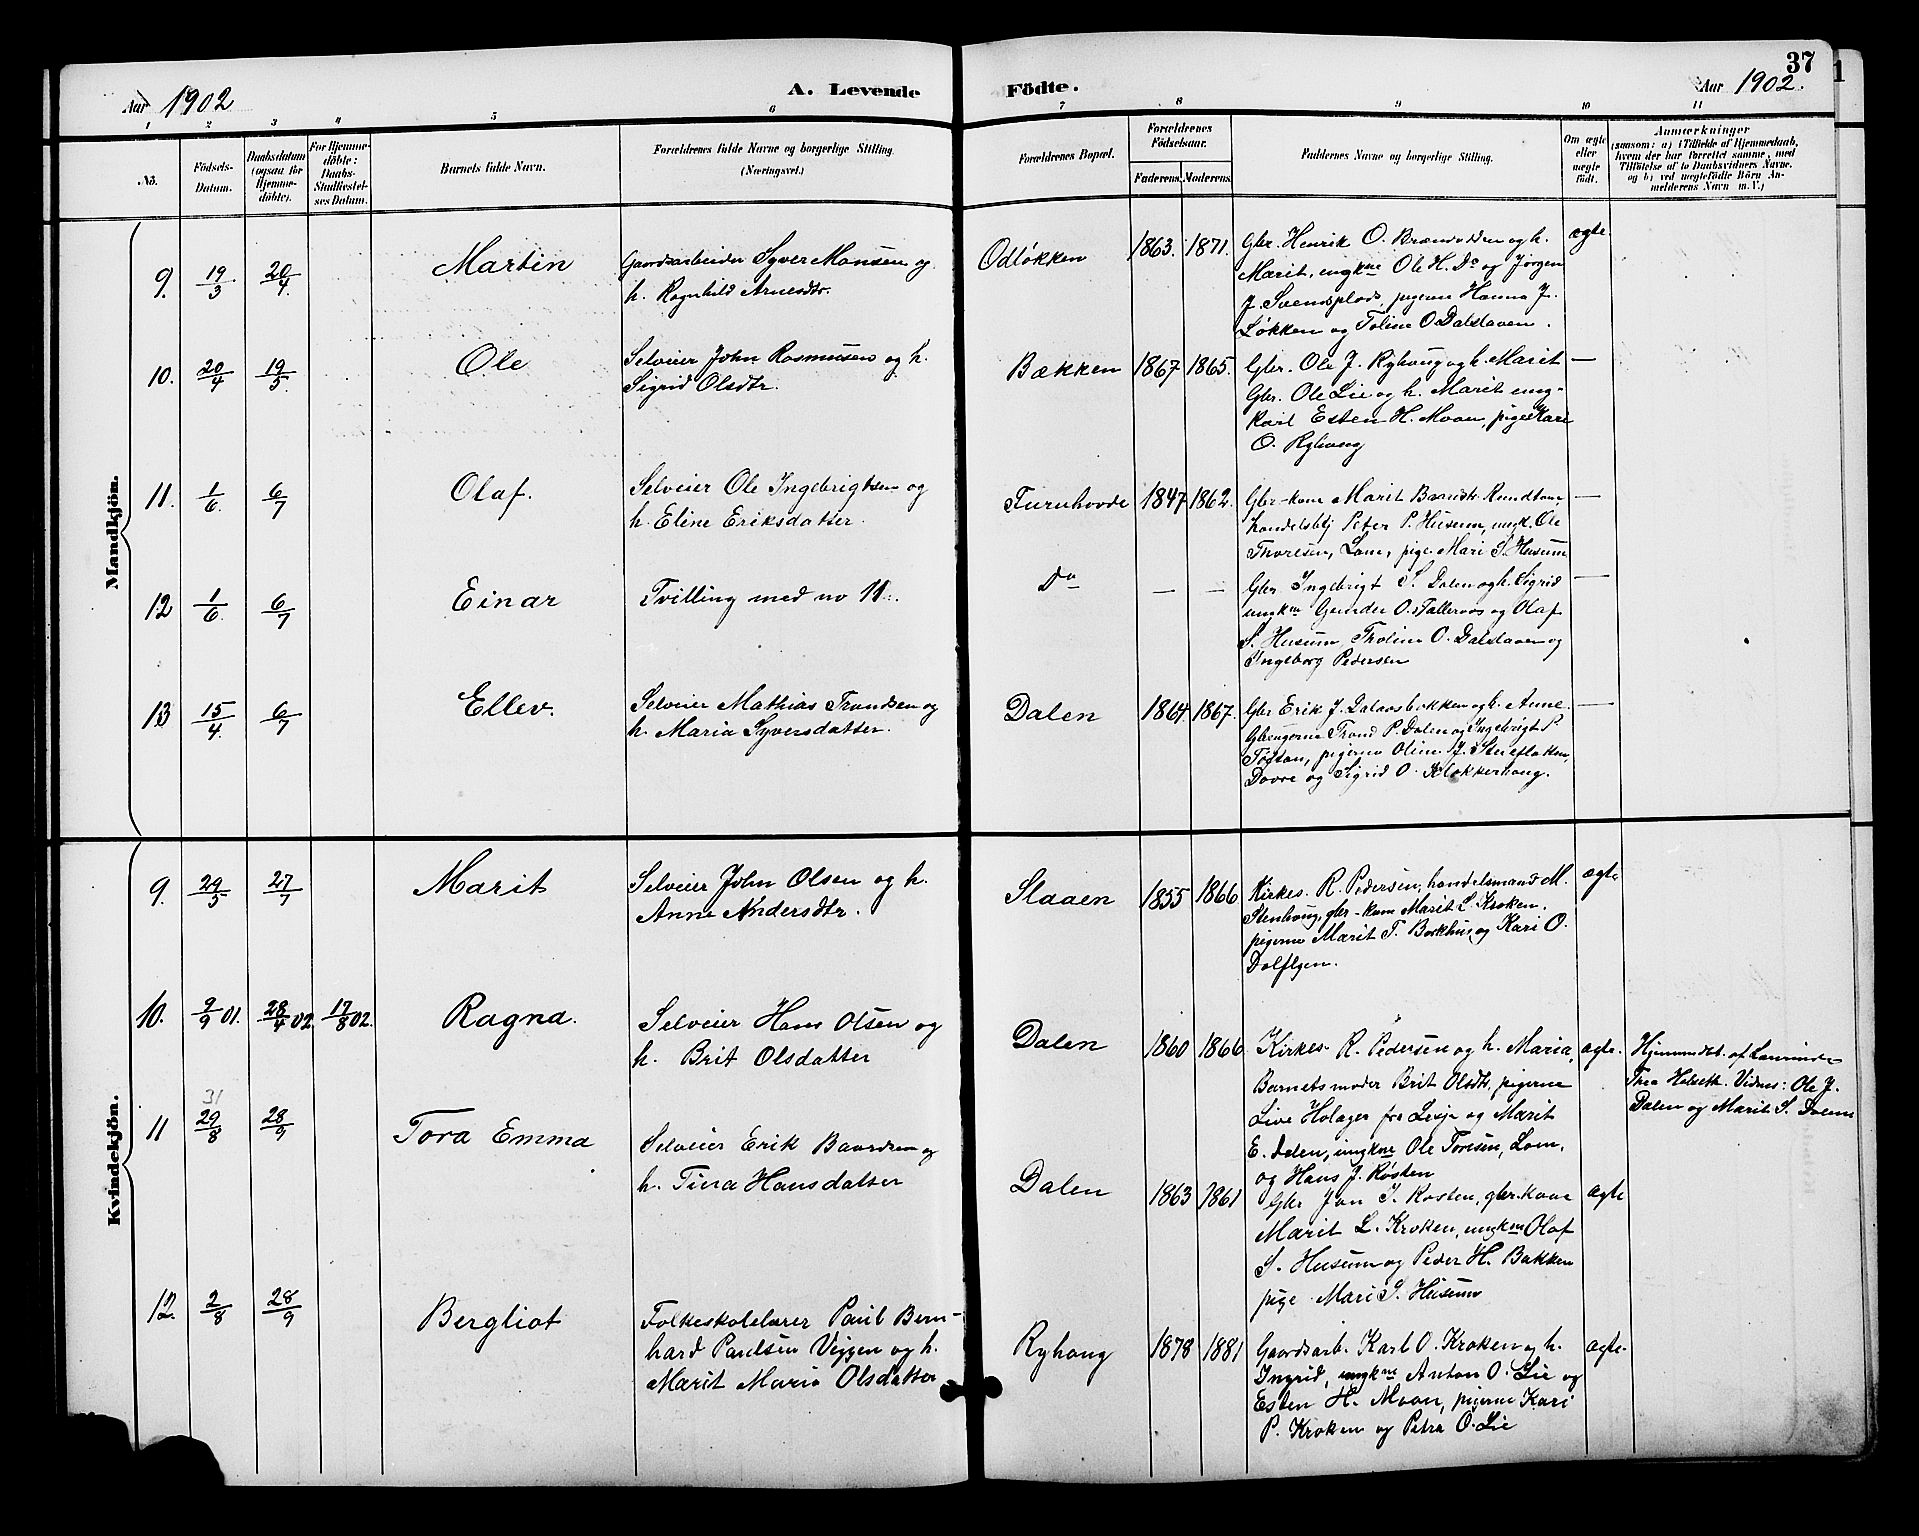 37
Aar 1902
A. Levende
Födte.
Aar 1902.
1 2 3 4 5 6 7 8 9 10 11
No.
Födsels-
Datum.
Daabsdatum
(ogsaa for
Hjemme-
döbte).
For Hjemme-
döbte:
Daabs-
Stadfæstel-
ses Datum.
Barnets fulde Navn.
Forældrenes fulde Navne og borgerlige Stilling.
(Næringsvei.)
Forældrenes Bopæl.
Forældrenes
Födselsaar.
Faderens. Moderens.
Faddernes Navne og borgerlige Stilling.
Om ægte
eller
uægte
født.
Anmærkninger
(saasom: a) i Tilfælde af Hjemmedaab,
hvem der har forrettet samme, med
Tilföielse af to Daabsvidners Navne.
og b) ved uægtefödte Börn An-
melderens Navn m. V.)
Mandkjön.
9. 19/3 20/4.
Martin
Gaardsarbeider Syver Monsen og
h. Ragnhild Arnesdtr.
Odløkken
1863. 1871.
Gbr. Henrik O. Brænvolden og h.
Marit, ungkne Ole H. Do og Jørgen
J. Svensplads, pigerne Hanna J.
Løkken og Toline O. Dalstaven.
ægte
10. 20/4 19/5.
Ole
Selveier John Rasmusen og h.
Sigrid Olsdtr.
Bækken
1867 1865.
Gbr. Ole J. Ryhaug og h. Marit
Gbr. Ole Lie og h. Marit ung-
karl Esten H. Moan, pige Kari
O. Ryhaug
—
11. 1/6. 6/7
Olaf.
Selveier Ole Ingebrigtsen og
h. Eline Eriksdatter.
Turuhovde
1847 1862.
Gbr-kone Marit Barndtr. Rundtom
handelsbtj Peter P. Husum, ungk. Ole
Thoresen, Lom, pige Mari S. Husum
—
12 1/6. 6/7
Einar
Tvilling med no 11.
Do
— —
Gbr Ingebrigt S. Dalen og h. Sigrid
ungkne Gunder O. Talleraas og Olaf
S. Husum Tholine O. Dalstaven og
Ingeborg Pedersen
—
13 15/4. 6/7
Ellev.
Selveier Mathias Trondsen og
h. Maria Syversdatter.
Dalen
1864. 1867.
Gbr Erik J. Dalaasbakken og h. Anne
Trond P. Dalen og Ingebrigt P.
pigerne Oline J.
Dovre og Sigrid O. Klokkerhaug.
—
Kvindekjön.
9. 29/5 27/7
Marit
Selveier John Olsen og h.
Anne Andersdtr.
Slaaen
1855 1866
Kirkes. R. Pedersen, handelsmand M.
Stenhaug, gbr-kone Marit L. Kroken.
pigerne Marit T. Borkhus, og Kari O.
ægte
10. 9/9 01. 28/4 02. 17/8 02.
Ragna.
Selveier Hans Olsen og
h. Brit Olsdatter
Dalen
1860 1866
Kirkes. R. Pedersen og h. Maria,
Barnets moder Brit Olsdtr. pigerne
Live Holager fra Lesje og Marit
E. Dalen, ungkne Ole Toresen, Lom,
og Hans J. Røsten
ægte.
Hjemmedøbt af
Thea Holseth. Vidner: Ole J.
Dalen og Marit S. Dalen
31
11 29/8 28/9
Tora Emma
Selveier Erik Baardsen og
h. Tina Hansdatter
Dalen
1863 1861
Gbr Jon J. Rosten, gbr.kone
Marit L. Kroken, ungkne Olaf
S. Husum og Peder H. Bakken
pige Mari S. Husum
ægte
12. 2/8 28/9
Bergliot
Folkeskolelærer Paul Bern-
hard Paulsen Viggen og h.
Marit Maria Olsdatter
Ryhaug
1878 1881
Gaardsarb. Karl O. Kroken og h.
Ingrid, ungkne Anton O. Lie og
Esten H. Moan, pigerne Kari
P. Kroken og Petra O. Lie
ægte.